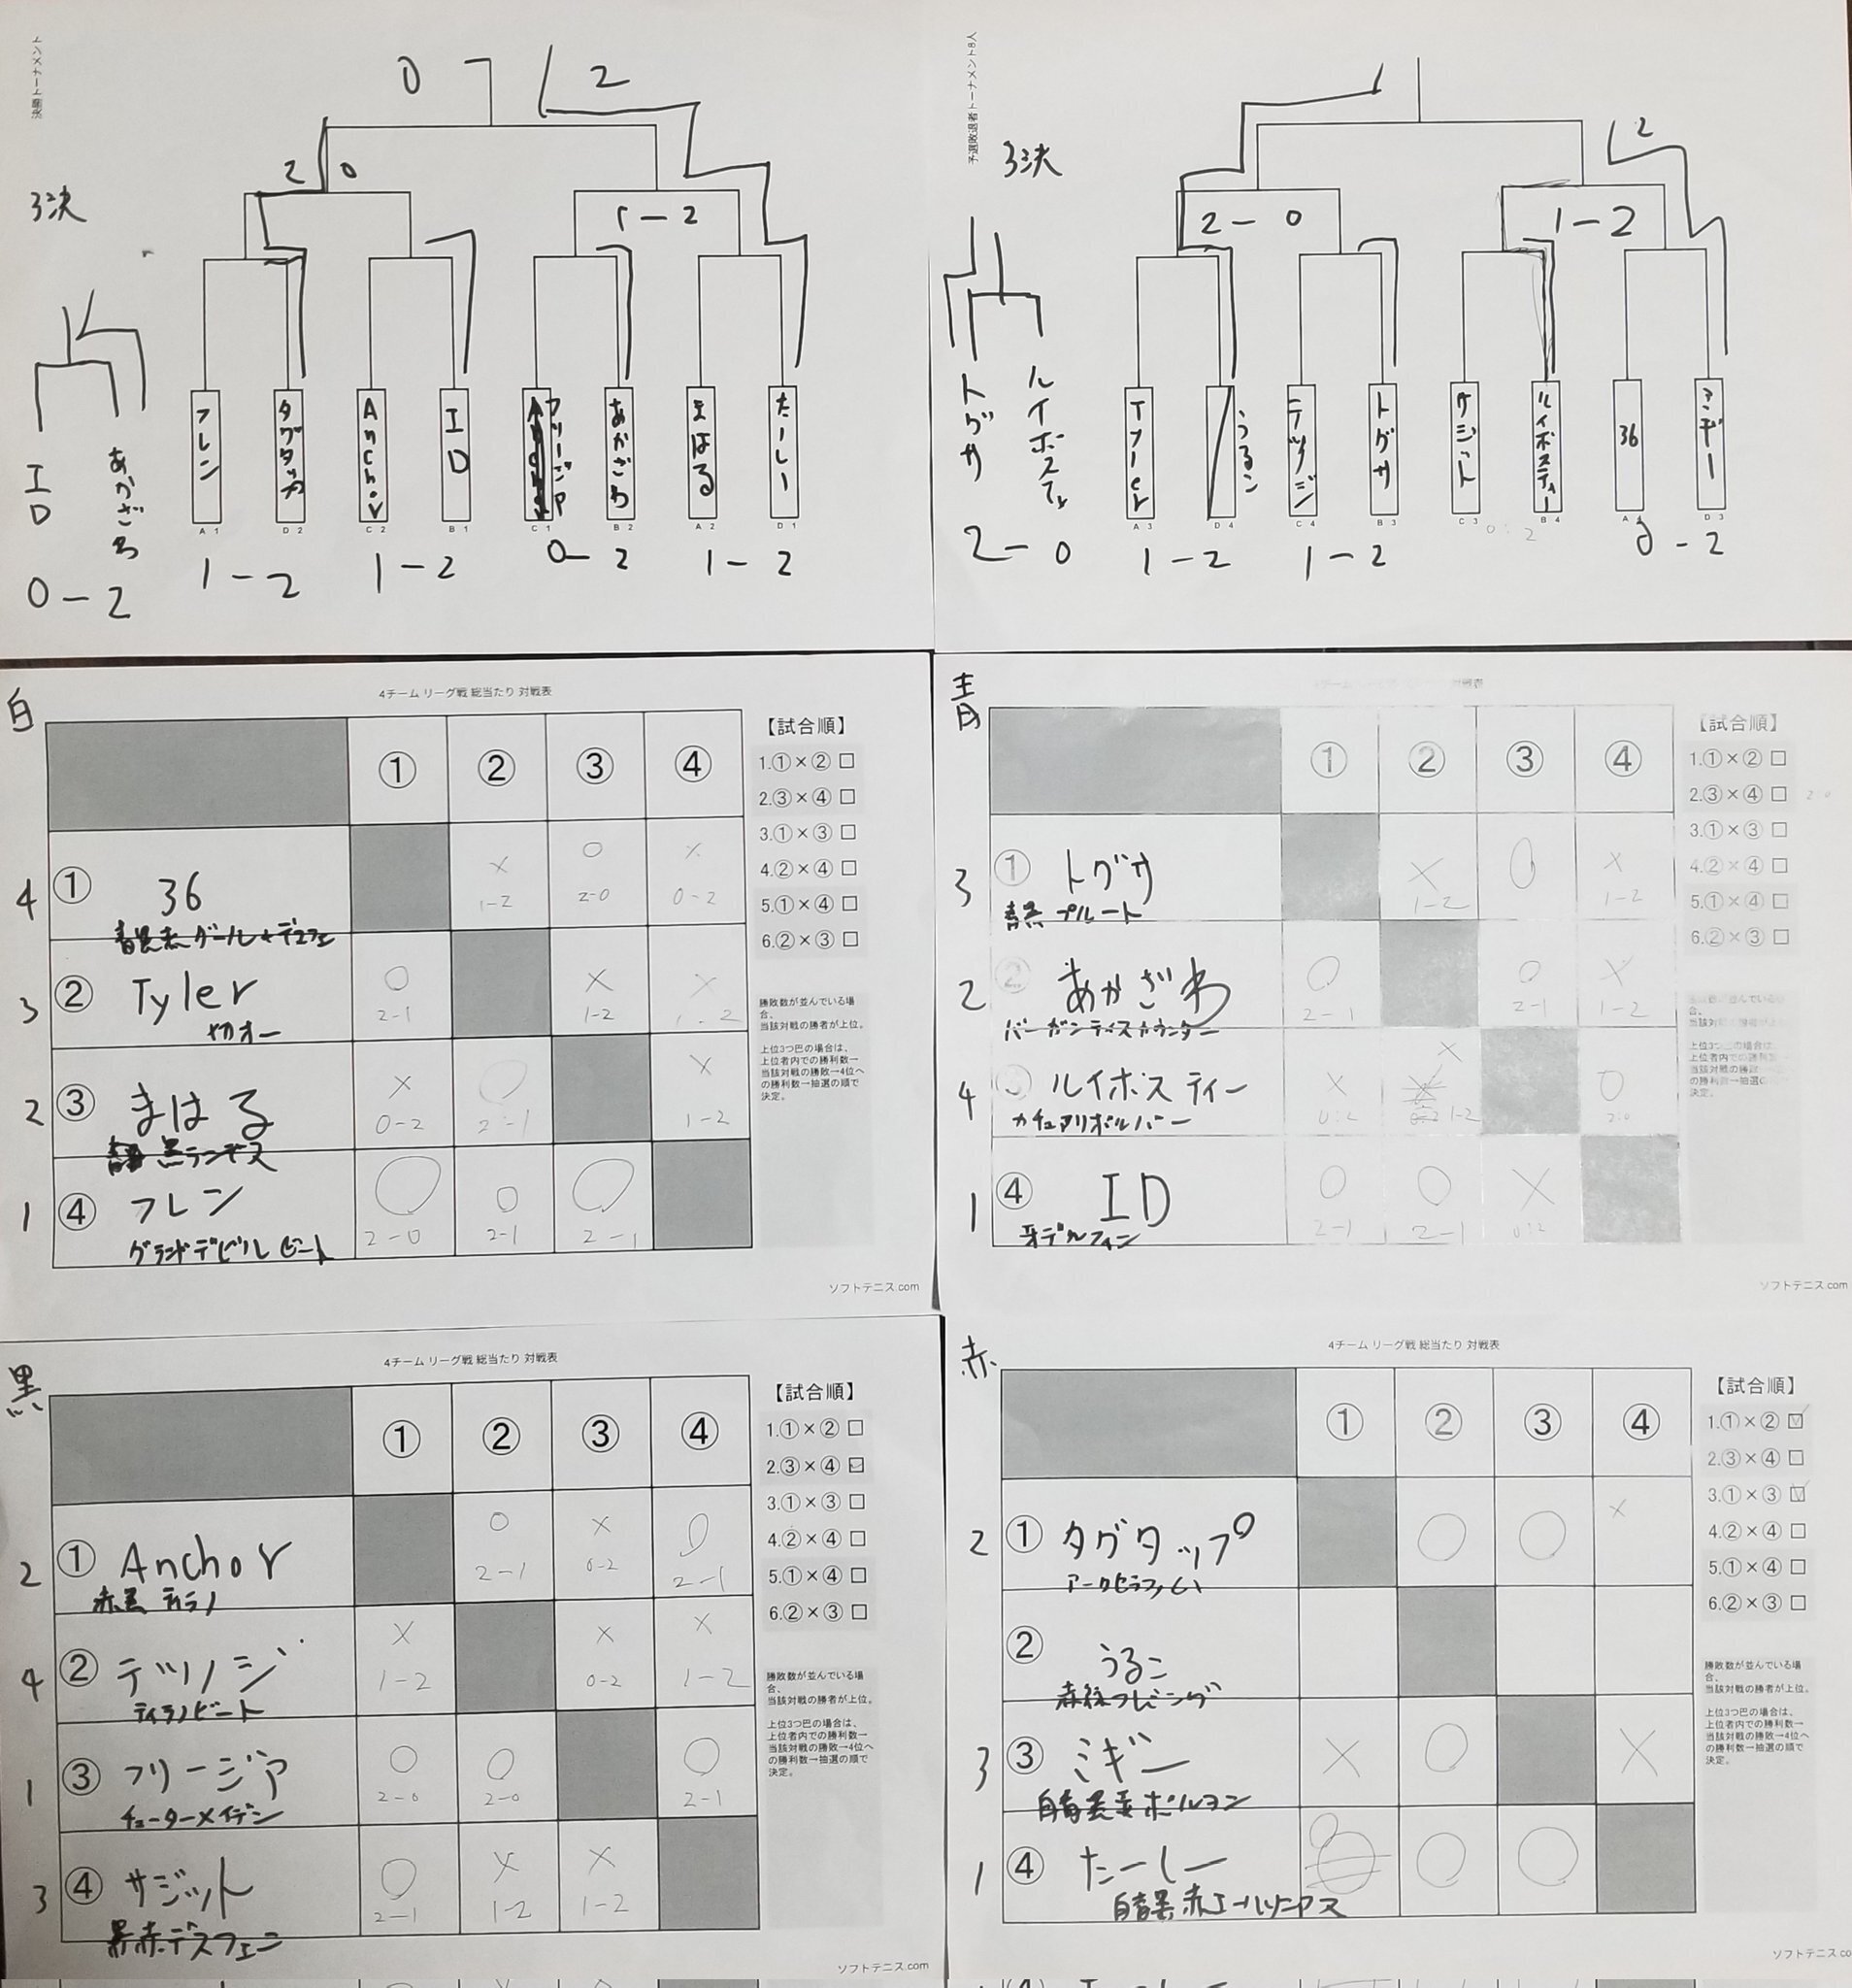 決勝トーナメント
0 2
3決
2 0
1-2
フレン
タグタップ
Anchor
ID
フリージア
あかざわ
まはる
たーしー
A 1
D 2
C 2
B 1
C 1
B 2
A 2
D 1
ID
あかざわ
0-2
1-2
1-2
0-2
1-2
予選敗退者トーナメント8人
3決
2
2-0
1-2
トグサ
ルイボスティー
2-0
Tyler
うるこ
テツノジ
トグサ
サジット
ルイボスティー
36
ミギー
A 3
D 4
C 4
B 3
C 3
B 4
D 3
1-2
1-2
0:2
0-2
白
4チーム リーグ戦 総当たり 対戦表
① ② ③ ④
4 ① 36
× ○ ×
1-2 2-0 0-2
3 ② Tyler
○ × ×
2-1 1-2 1-2
2 ③ まはる
× ○ ×
0-2 2-1 1-2
1 ④ フレン
○ ○ ○
2-0 2-1 2-1
グランドデビルビート
【試合順】
1.①×② □
2.③×④ □
3.①×③ □
4.②×④ □
5.①×④ □
6.②×③ □
勝敗数が並んでいる場
合、
当該対戦の勝者が上位。
上位3つ巴の場合は、
上位者内での勝利数→
当該対戦の勝敗→4位へ
の勝利数→抽選の順で
決定。
ソフトテニス.com
青
① ② ③ ④
3 ① トグサ
× ○ ×
1-2 1-2
青黒 プルート
2 ② あかざわ
○ ○ ×
2-1 2-1 1-2
バーガンディスカウンター
4 ルイボスティー
× × ○
0:2 1-2 2:0
1 ④ ID
○ ○ ×
2-1 2-1 0:2
牙デルフィン
【試合順】
1.①×② □
2.③×④ □
3.①×③ □
4.②×④ □
5.①×④ □
6.②×③ □
ソフトテニス.com
黒
4チーム リーグ戦 総当たり 対戦表
① ② ③ ④
2 ① Anchor
○ × ○
2-1 0-2 2-1
赤黒 ティラノ
4 ② テツノジ
× × ×
1-2 0-2 1-2
ティラノビート
1 ③ フリージア
○ ○ ○
2-0 2-0 2-1
チューターメイデン
3 ④ サジット
○ × ×
2-1 1-2 1-2
黒赤デスフェニ
【試合順】
1.①×② □
2.③×④ □
3.①×③ □
4.②×④ □
5.①×④ □
6.②×③ □
勝敗数が並んでいる場
合、
当該対戦の勝者が上位。
上位3つ巴の場合は、
上位者内での勝利数→
当該対戦の勝敗→4位へ
の勝利数→抽選の順で
決定。
ソフトテニス.com
赤
4チーム リーグ戦 総当たり 対戦表
① ② ③ ④
2 ① タグタップ
○ ○ ×
アークセラフィム
② うるこ
3 ③ ミギー
× ○ ×
1 ④ たーしー
○ ○ ○
【試合順】
1.①×② ☑
2.③×④ □
3.①×③ ☑
4.②×④ □
5.①×④ □
6.②×③ □
勝敗数が並んでいる場
合、
当該対戦の勝者が上位。
上位3つ巴の場合は、
上位者内での勝利数→
当該対戦の勝敗→4位へ
の勝利数→抽選の順で
決定。
ソフトテニス.co